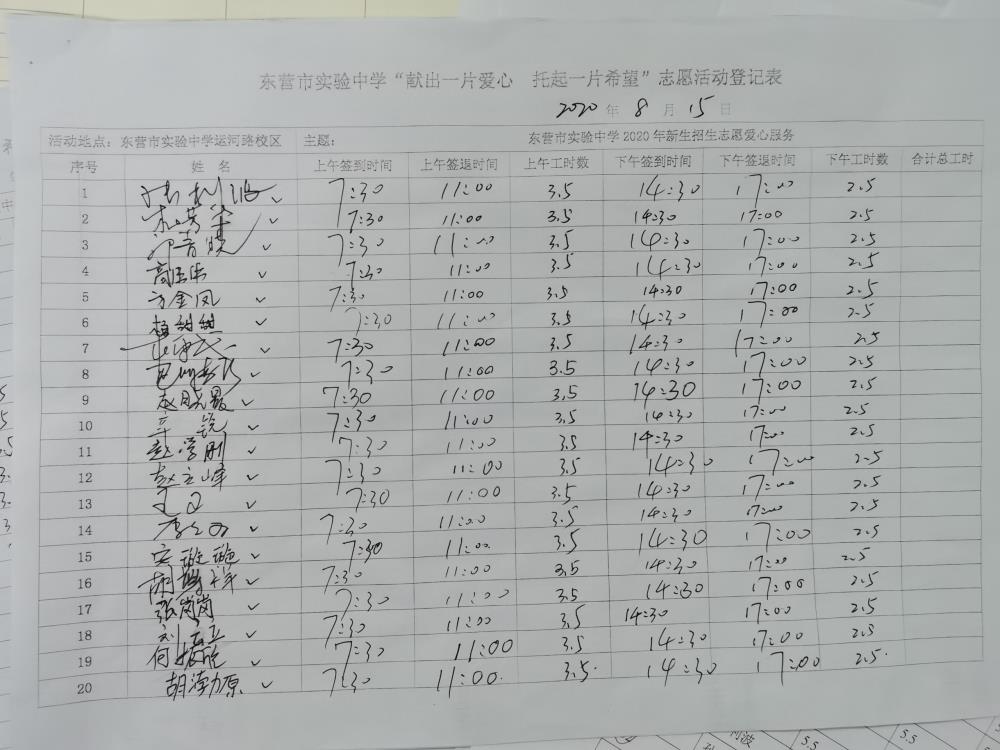 东营市实验中学“献出一片爱心 托起一片希望”志愿活动登记表
2020 年 8 月 15 日
活动地点：东营市实验中学运河路校区 主题： 东营市实验中学2020年新生招生志愿爱心服务
序号 姓 名 上午签到时间 上午签退时间 上午工时数 下午签到时间 下午签退时间 下午工时数 合计总工时
1 7:30 11:00 3.5 14:30 17:00 2.5
2 7:30 11:00 3.5 14:30 17:00 2.5
3 7:30 11:00 3.5 14:30 17:00 2.5
4 7:30 11:00 3.5 14:30 17:00 2.5
5 方金凤 ✓ 7:30 11:00 3.5 14:30 17:00 2.5
6 杨甜甜 ✓ 7:30 11:00 3.5 14:30 17:00 2.5
7 7:30 11:00 3.5 14:30 17:00 2.5
8 7:30 11:00 3.5 14:30 17:00 2.5
9 7:30 11:00 3.5 14:30 17:00 2.5
10 7:30 11:00 3.5 14:30 17:00 2.5
11 赵学刚 ✓ 7:30 11:00 3.5 14:30 17:00 2.5
12 赵立峰 ✓ 7:30 11:00 3.5 14:30 17:00 2.5
13 7:30 11:00 3.5 14:30 17:00 2.5
14 7:30 11:00 3.5 14:30 17:00 2.5
15 7:30 11:00 3.5 14:30 17:00 2.5
16 7:30 11:00 3.5 14:30 17:00 2.5
17 张岗岗 ✓ 7:30 11:00 3.5 14:30 17:00 2.5
18 7:30 11:00 3.5 14:30 17:00 2.5
19 7:30 11:00 3.5 14:30 17:00 2.5
20 7:30 11:00 3.5 14:30 17:00 2.5
5.5
5.5